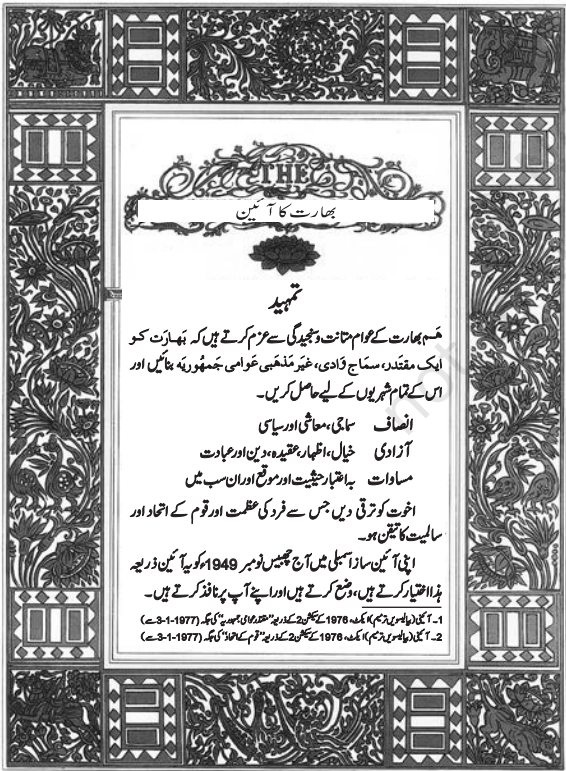 THE
بھارت کا آئین
تمہید
ہم بھارت کے عوام متانت و سنجیدگی سے عزم کرتے ہیں کہ بھارت کو
ایک مقتدر، سماج وادی، غیر مذہبی عوامی جمہوریہ بنائیں اور
اس کے تمام شہریوں کے لیے حاصل کریں۔
انصاف سماجی، معاشی اور سیاسی
آزادی خیال، اظہار، عقیدہ، دین اور عبادت
مساوات بہ اعتبار حیثیت اور موقع اور ان سب میں
اخوت کو ترقی دیں جس سے فرد کی عظمت اور قوم کے اتحاد اور
سالمیت کا تیقن ہو۔
اپنی آئین ساز اسمبلی میں آج چھبیس نومبر 1949ء کو یہ آئین ذریعہ
ہذا اختیار کرتے ہیں، وضع کرتے ہیں اور اپنے آپ پر نافذ کرتے ہیں۔
1- آئینی (بیالیسویں ترمیم) ایکٹ، 1976 کے سیکشن 2 کے ذریعہ "مقتدر عوامی جمہوریہ" کی جگہ (3-1-1977 سے)
2- آئینی (بیالیسویں ترمیم) ایکٹ، 1976 کے سیکشن 2 کے ذریعہ "قوم کے اتحاد" کی جگہ (3-1-1977 سے)
not